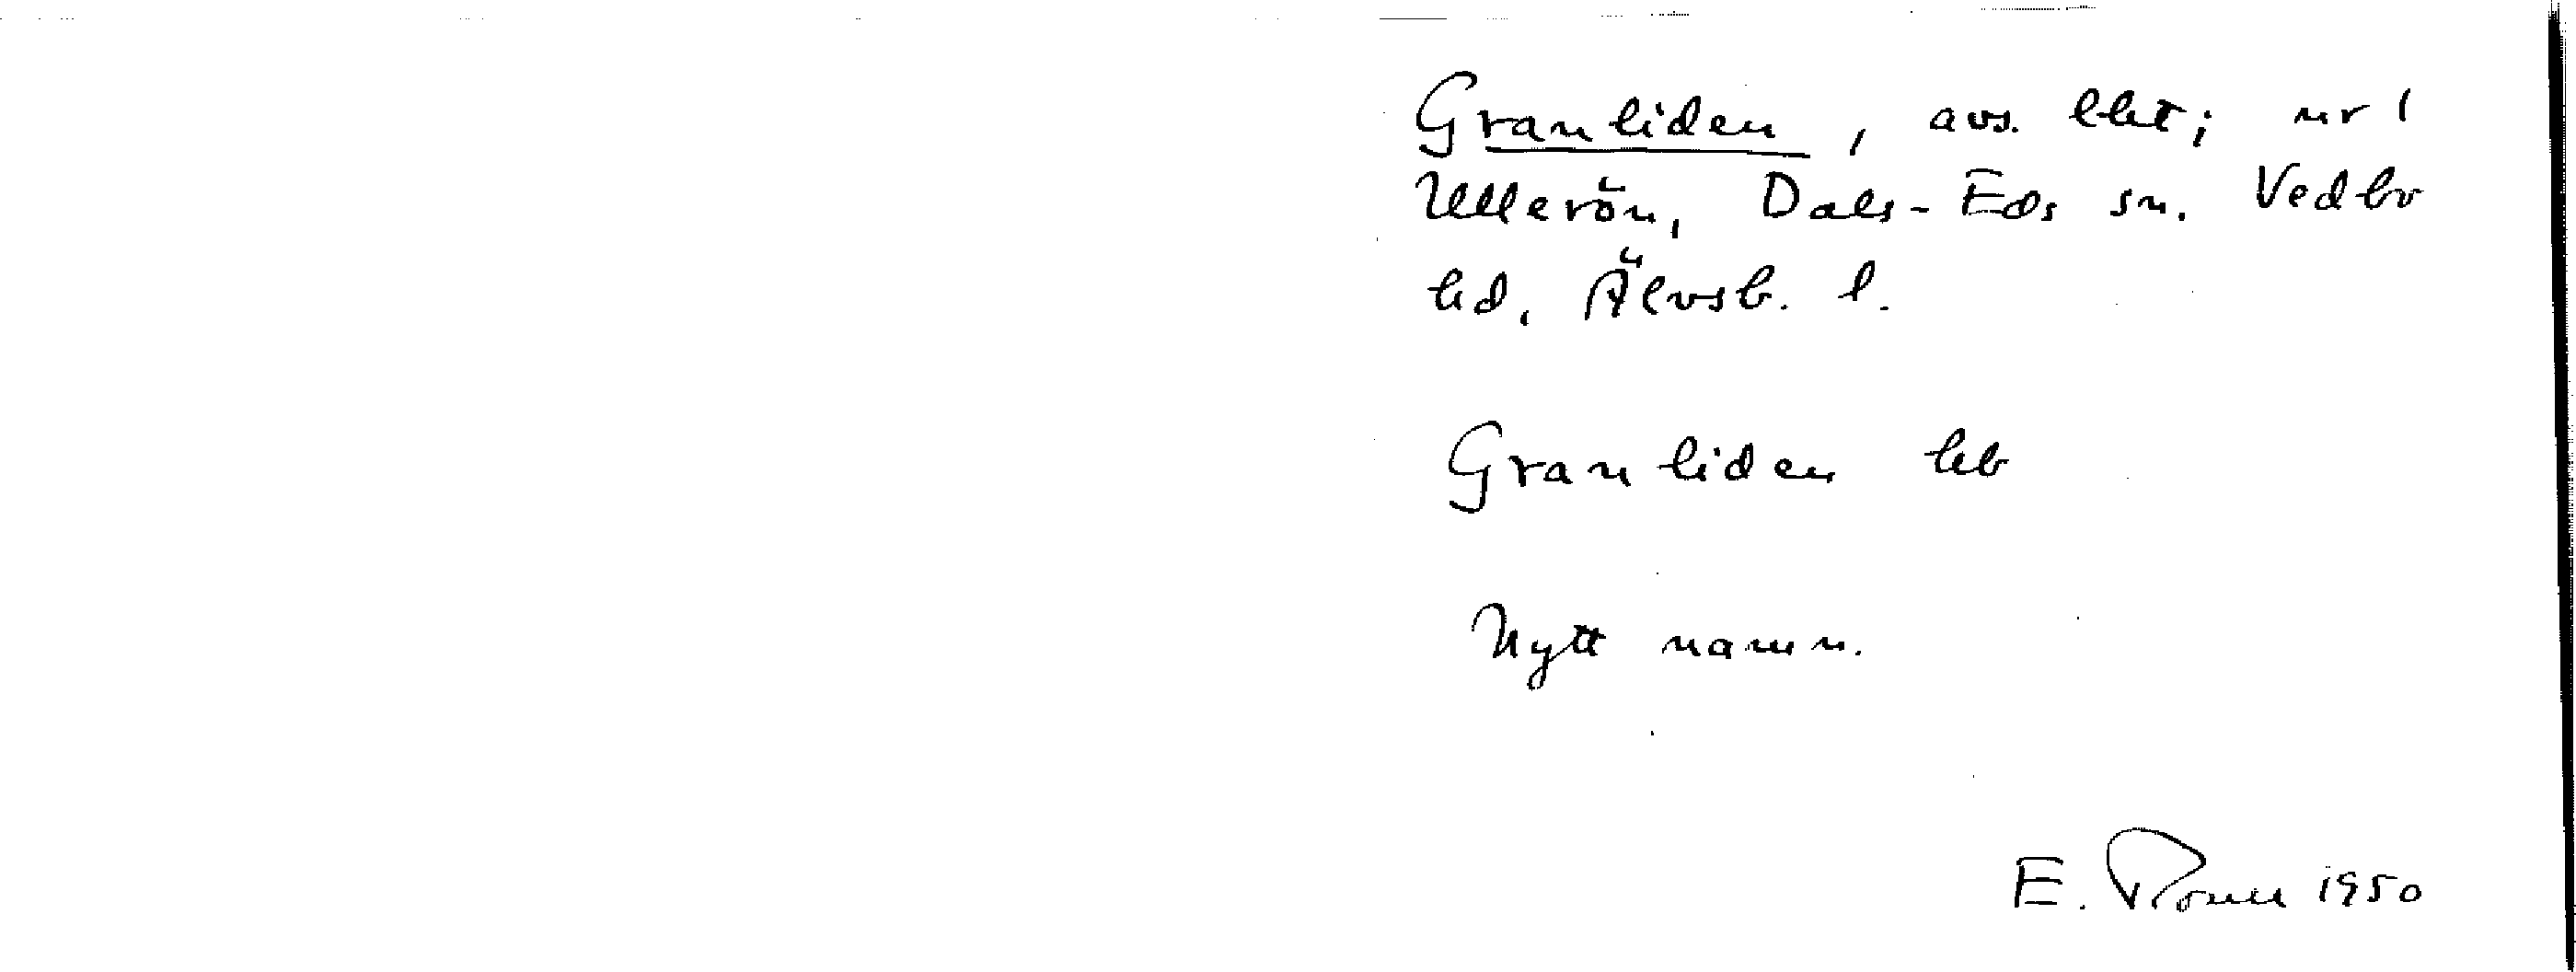 Granliden, avs. lht; nr 1
Ullerön, Dals-Eds sn. Vedbo
hd, Älvsb. l.
Granliden hb
Nytt namn.
E. 1950